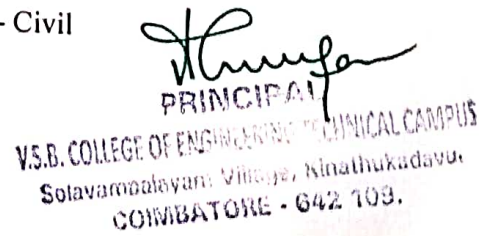 - Civil
PRINCIPAL
V.S.B. COLLEGE OF ENGINEERING TECHNICAL CAMPUS
Solavampalayam Village, Kinathukadavu,
COIMBATORE - 642 109.